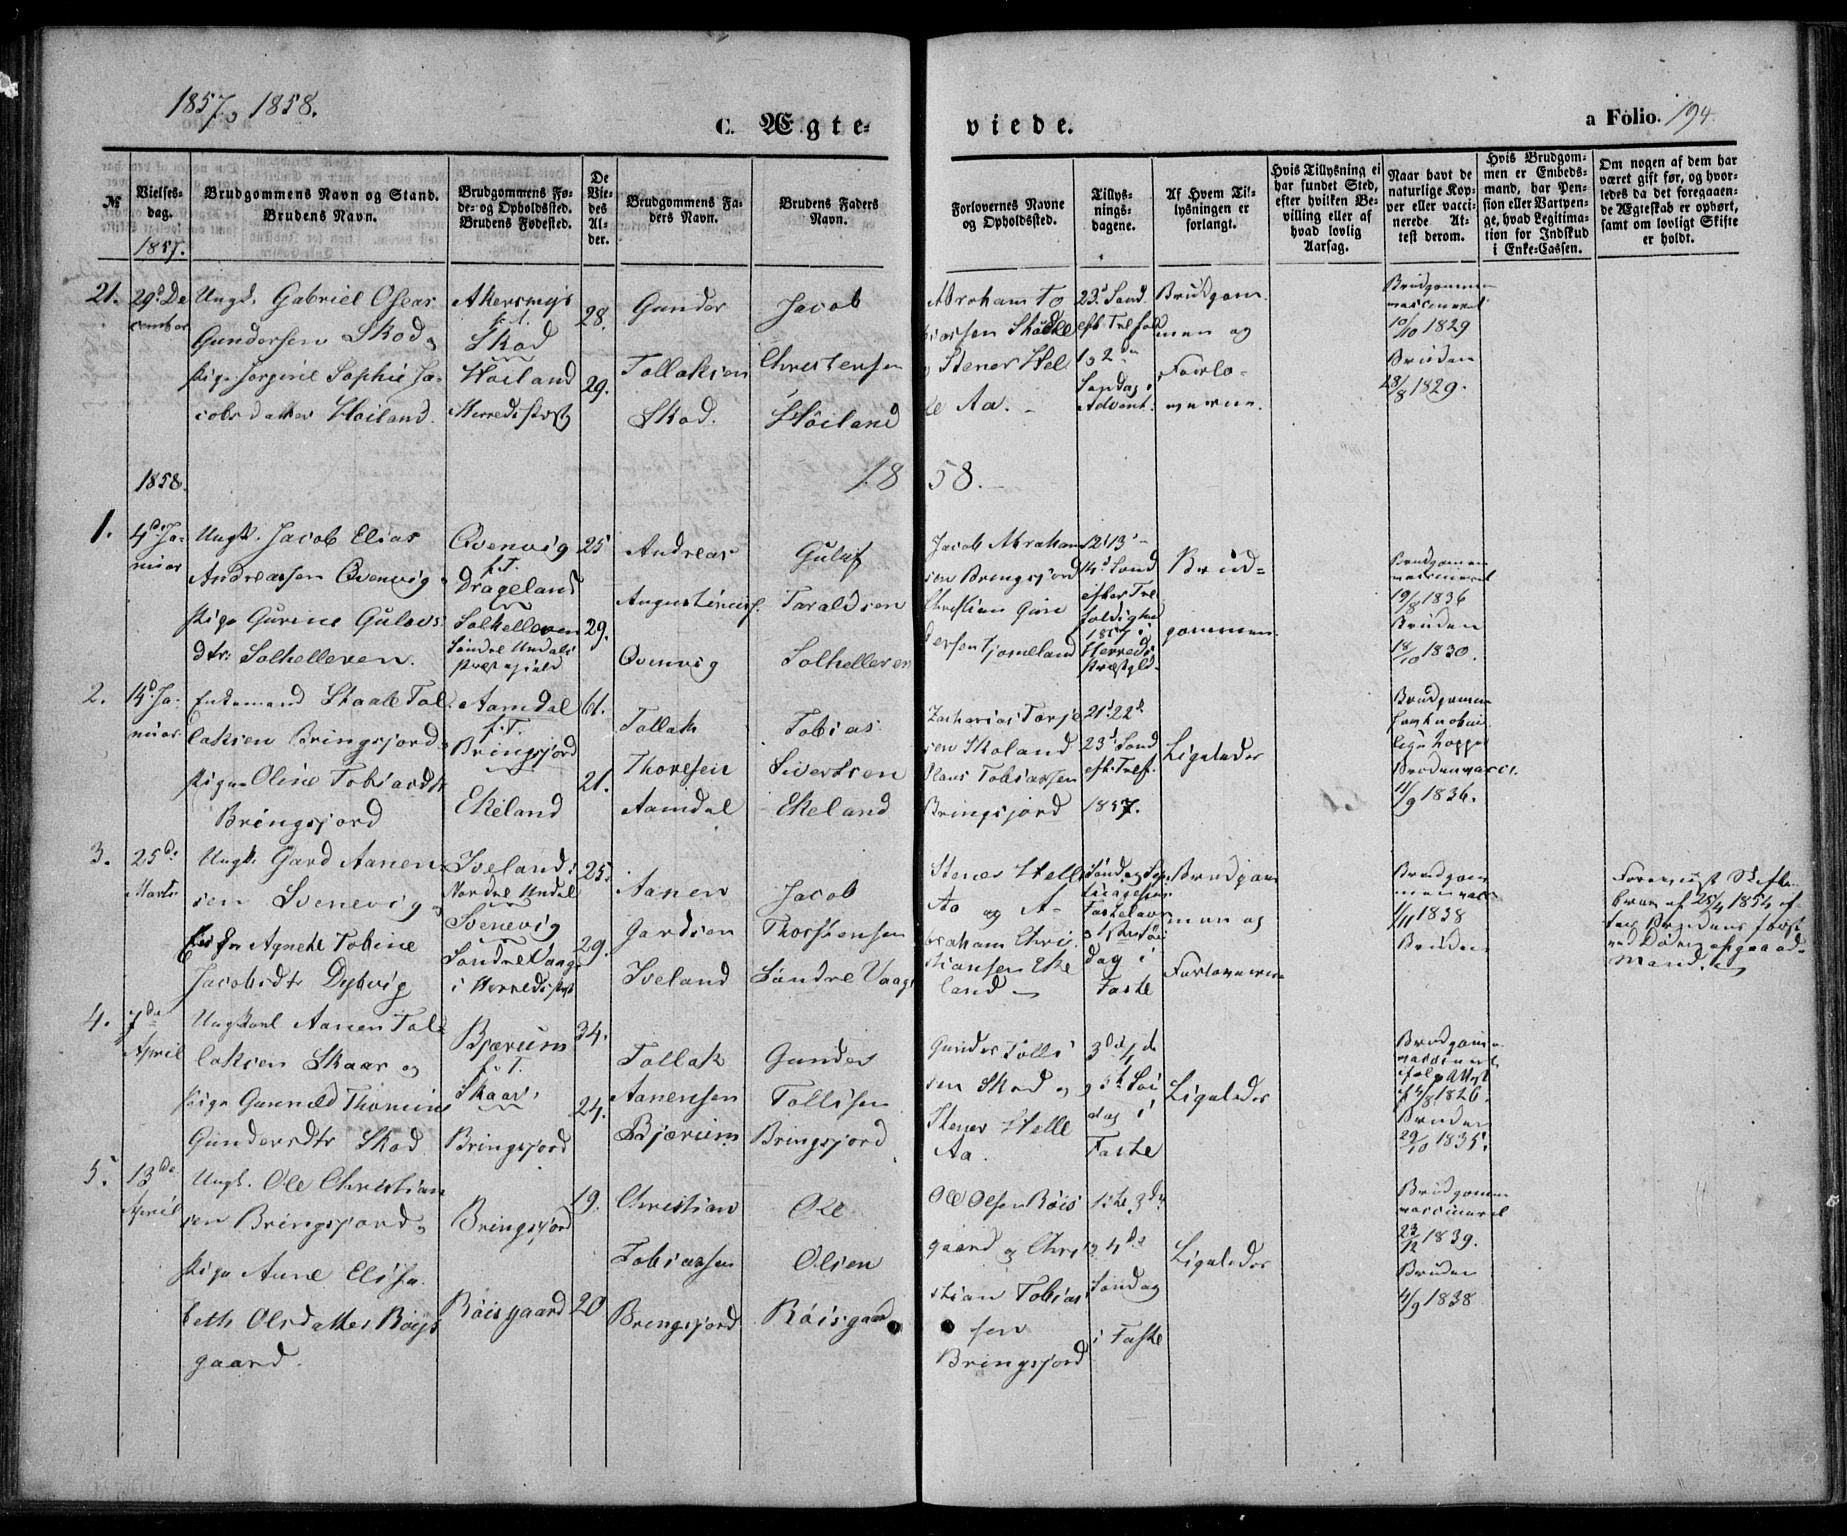 1857, 1858.
C. Ægte-
viede.
a Folio. 194.
№
Vielses-
dag.
1857.
Brudgommens Navn og Stand.
Brudens Navn.
Brudgommens Fø-
de- og Opholdssted.
Brudens Fødested.
De
Vie-
des
Al-
der.
Brudgommens Fa-
ders Navn.
Brudens Faders
Navn.
Forlovernes Navne
og Opholdssted.
Tillys-
nings-
dagene.
Af Hvem Til-
lysningen er
forlangt.
Hvis Tillysning ei
har fundet Sted,
efter hvilken Be-
villing eller af
hvad lovlig
Aarsag.
Naar havt de
naturlige Kop-
per eller vacci-
nerede. At-
test derom.
Hvis Brudgom-
men er Embeds-
mand, har Pen-
sion eller Vartpen-
ge, hvad Legitima-
tion for Indskud
i Enke-Cassen.
Om nogen af dem har
været gift før, og hvor-
ledes da det foregaaen-
de Ægteskab er ophørt,
samt om lovligt Skifte
er holdt.
21.
29d De
cember
Ungk. Gabriel Oseas
Gundersen Skod og
Pige Jorgine Sophie Ja-
cobsdatter Høiland.
Skod
Høiland
Herreds Præst
28.
29.
Gunder
Tollaksen
Skod.
Jacob
Christensen
Høiland
Abraham To
biassen
Stener Hel
le Aa.
23d Sønd.
eft Trefold
1 og 2den
Søndag i
Advent.
Brudgom
men og
Forlo-
verne.
Brudgommen
vaccineret
10/10 1829
Bruden
28/8 1829.
1858.
1858.
1.
4de Ja-
nuar
Ungk. Jacob Elias
Andreassen Qvenvig
Pige Gurine Gulovs
dtr: Solhelleren.
Qvenvig
f.T.
Drageland
Solhelleren
Søndre Undals
Præstegield
25
29.
Andreas
Augustinius.
Qvenvig
Guluf
Taraldsen
Solhelleren
Jacob Abraham
sen Bringsjord
Christian Gun
dersen Tjomeland
12t 13
14d Sønd
efter Tre
foldighed
1857 i
Herreds
Præstgld.
Brud-
gommen
Brudgommen
vaccineret
19/8 1836
Bruden
18/10 1830.
2.
14d Ja-
nuar
Enkemand Staale Tol
laksen Bringsjord
Pige Oline Tobiasdtr
Bringsjord
Aamdal
f.T.
Bringsjord
Ekeland
61.
21.
Tollak
Thoresen
Aamdal
Tobias
Sivertsen
Ekeland
Zacharias Terje
sen Skoland
Claus Tobiassen
Bringsjord
21d 22d
23d Sønd
eft: Tref.
1857.
Ligeledes
Brudgommen
lige Kopper
Bruden vacci.
11/9 1836.
3.
25de
Marts
Ungk. Gard Aanen
sen Svenevig og
Enke Agnete Tobine
Jacobsdtr Dybvig
Iveland i
Nordre Undal
Svenevig
Søndre Vaage
i Herreds Præst
25.
29.
Aanen
Gardsen
Iveland
Jacob
Thorstensen
Søndre Vaage
Stener Helle
Aa og A-
braham Chri
stiansen Eke
land
Søndag Sep
tuagesima
Fastelavn
dag i
Faste
Brudgom
men og
Forloverne
Brudgom
men vacc.
1/11 1838
Bruden
Foreviist Skifte
brev af 25/4 1854 ef
ter Brudens først
ved Døden afgaaed
Mand.
4.
7de
April
Ungkarl Aanen Tol
laksen Skaar og
Pige Gunvild Thomine
Gundersdtr Skod.
Bjærum
f.T.
Skaar.
Bringsjord
34.
24.
Tollak
Aanensen
Bjærum
Gunder
Tollisen
Bringsjord
Gunder Tolli
sen Skod og
Stener Helle
Aa.
3de 4de
og 5t Søn
dag i
Faste
Ligeledes
Brudgommen
vaccineret
ifølge Attest
af 4/8 1826.
Bruden
29/10 1835.
5.
13de
April
Ungk. Ole Christian
sen Bringsjord og
Pige Anne Elisa
beth Olsdatter Røiys
gaard.
Bringsjord
Røisgaard
19.
20
Christian
Tobiassen
Bringsjord
Ole
Olsen
Røisgaard
Ole Olsen Røis
gaard og Chri
stian Tobias
sen
Bringsjord
1ste 3die
og 4de
Søndag
i Faste
Ligeledes
Brudgommen
vaccineret
23/12 1839.
Bruden
4/9 1838.